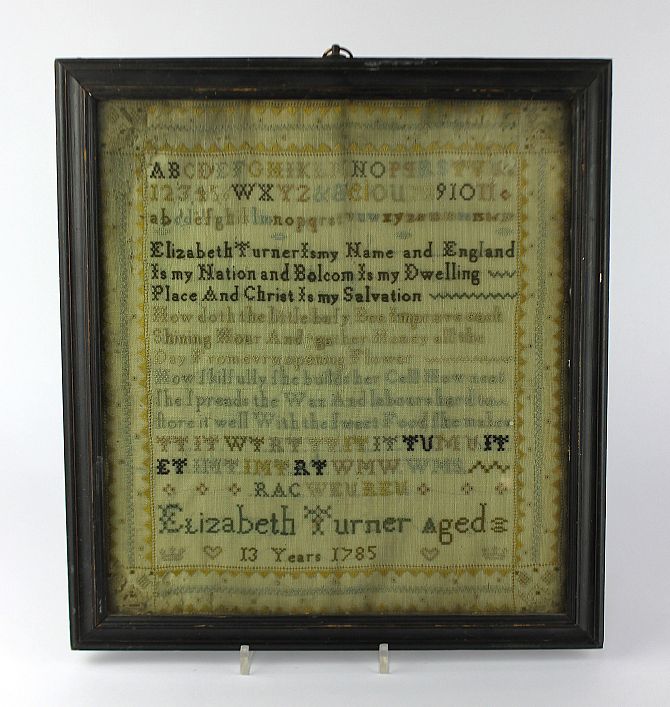 ABCDEFGHIKLMNOPQRSTVU
WXYZ 91011
abcdefghiklmnopqrst vuwxyz
Elizabeth Turner Is my Name and England
Is my Nation and Bolcom Is my Dwelling
Place And Christ Is my Salvation
How doth the little busy Bee Improve each
Shining Hour And gather Honey all the
Day From evry opening Flower
How skilfully she builds her Cell How neat
she spreads the Wax And labours hard to
store it well With the sweet Food she makes
TT IT WT RT TT IT IT TU MU IT
ET IMT IMT RT WMW WMS
RAC WEU REU
Elizabeth Turner Aged
13 Years 1785